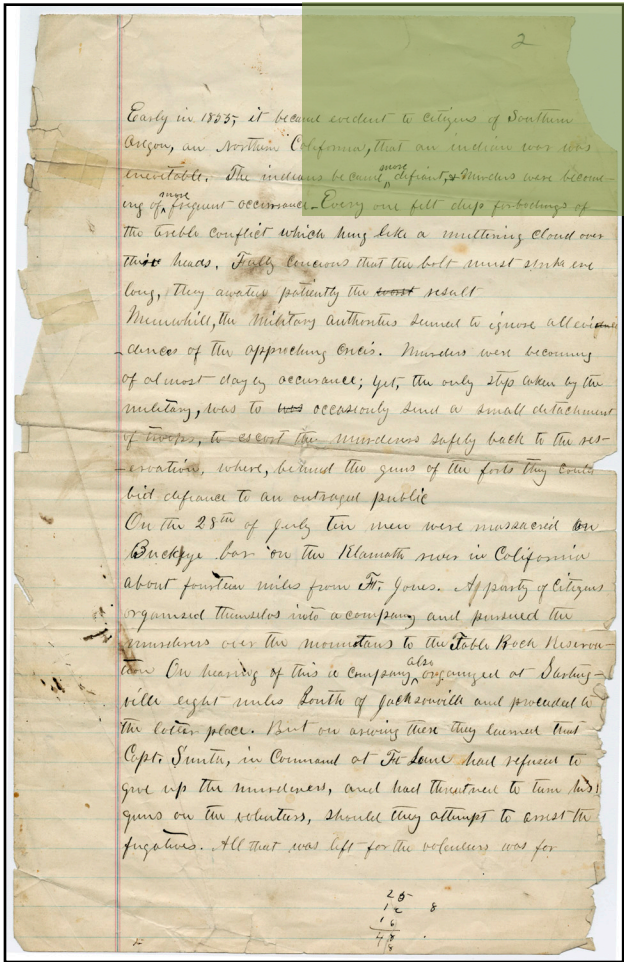 2
Early in 1855, it became evident to citizens of Southern
Oregon, an Northern California, that an indian war was
inevitable. The indians became more defiant, & Murders were becom-
ing of more frequent occurrance. Every one felt deep forbodings of
the terible conflict which hung like a muttering cloud over
their heads. Fully concious that the bolt must strike ere
long, they awated patiently the worst result
Meanwhill, the military authorites semed to ignore all evi
dances of the approching crisis. Murders were becoming
of almost dayly accurance; yet, the only step taken by the
military, was to occasionly send a small detachment
of troops, to escort the murderers safely back to the res-
ervation, where, behind the guns of the forts they could
bid defiance to an outraged public
On the 28th of July ten men were massacred on
Buckeye bar on the Klamath river in California
about fourteen miles from Ft. Jones. A party of Citizens
organised themselvs into a company and pursued the
murderers over the mountans to the Table Rock Reserva-
tion On hearing of this a company also organized at Sterling-
ville eight miles South of Jacksonville and proceded to
the latter place. But on ariving there they learned that
Capt. Smith, in Command at Ft Lane had refused to
give up the murderers, and had threatned to turn his
guns on the voluntiers, should they attempt to arrest the
fugatives. All that was left for the volenteers was for
25
12 8
16
48